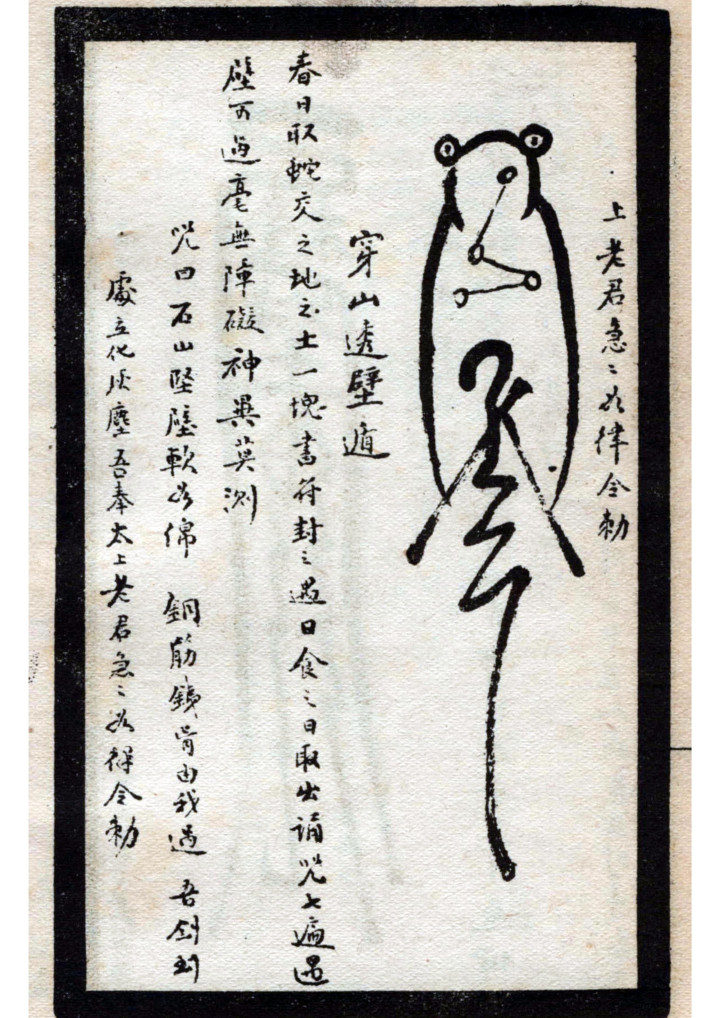 上老君急〻如律令勅
穿山透壁遁
春日取蛇交之地之土一塊書符封之遇日食之日取出誦咒七遍遇
壁可過毫無障礙神異莫測
咒曰石山堅壁軟如綿 銅筋鐵骨由我過 吾劍到
處立化灰塵吾奉太上老君急〻如律令勅